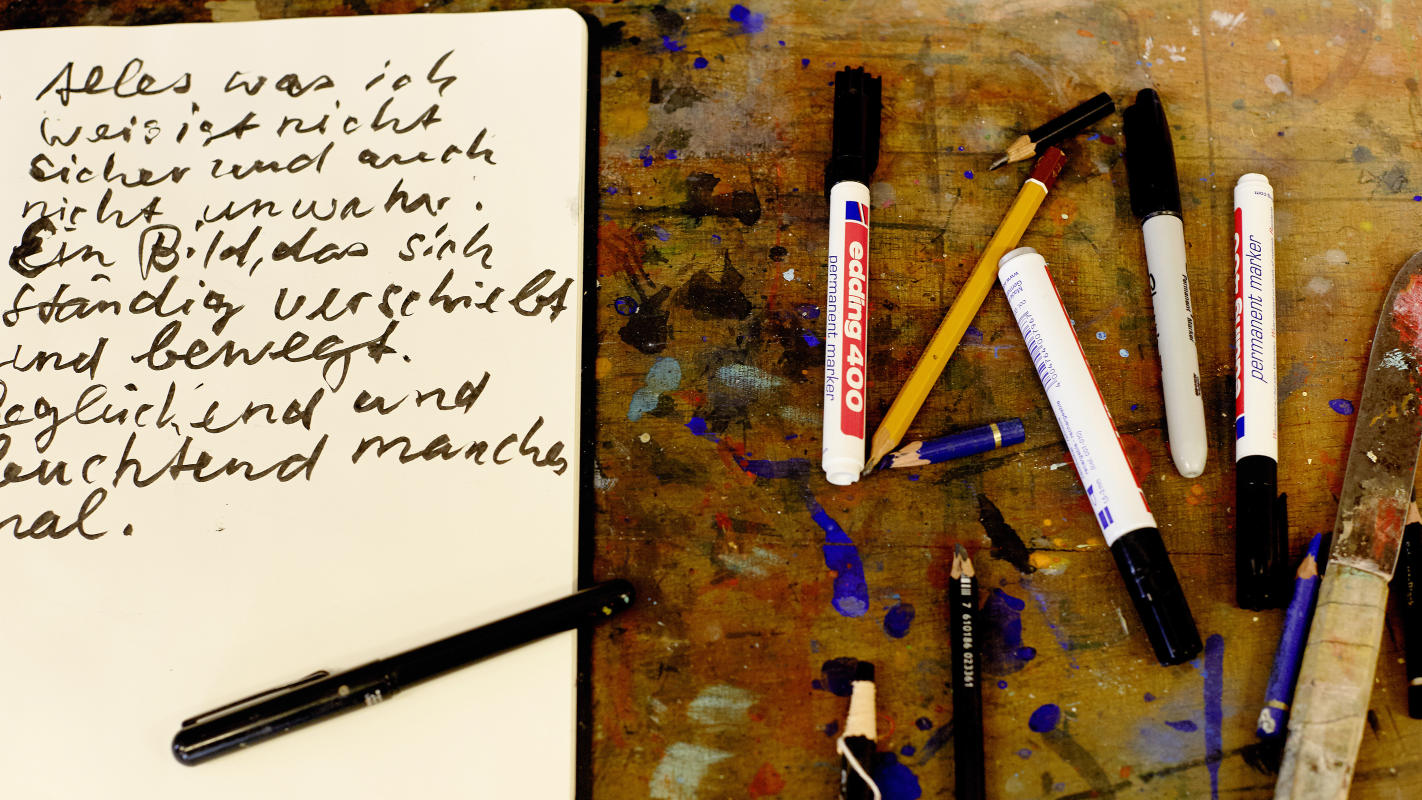 Alles was ich
weis ist nicht
sicher und auch
nicht unwahr.
Ein Bild, das sich
ständig verschiebt
und bewegt.
beglückend und
leuchtend manches
mal.
edding 400
permanent marker
permanent marker
Permanent Marker
4 004764 007967
7 610186 023361